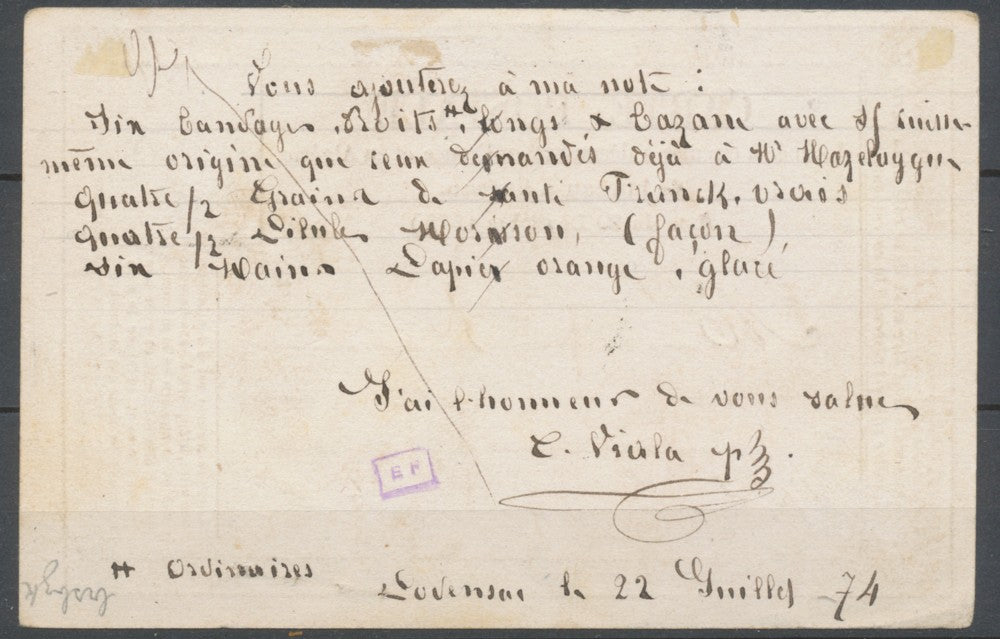 Vous ajouterez à ma note :
Six bandages droits ♯, longs & bazane avec Sf cuisse
même origine que ceux demandés déjà à Mr Mazeluygue
quatre 1/2 Grains de santé Franck, vrais
quatre 1/2 Pilules Morisson, (façon),
six Mains Papier orange, glacé
J'ai l'honneur de vous saluer
C. Viala ph
EF
♯ ordinaires
le 22 Juillet 74